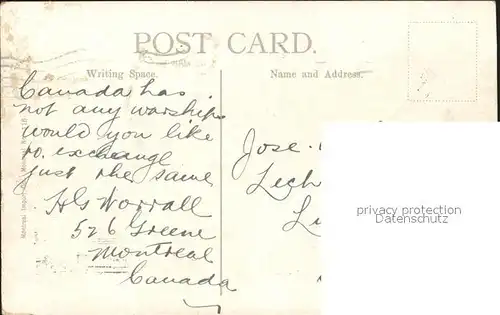 POST CARD.
Writing Space.
Name and Address.
Canada has
not any warships
would you like
to exchange
just the same
HG Worrall
526 Greene
Montreal
Canada
Jose.
Lech
Lu
privacy protection